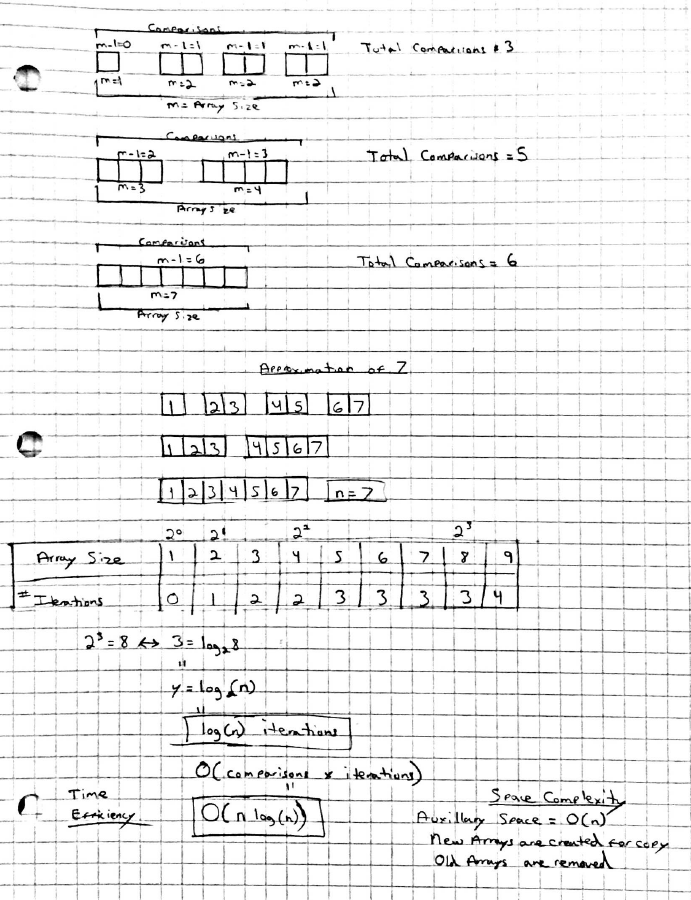 Comparisons
m-1=0 m-1=1 m-1=1 m-1=1 Total Comparisons = 3
m=1 m=2 m=2 m=2
m= Array Size
Comparisons
m-1=2 m-1=3 Total Comparisons = 5
m=3 m=4
Array Size
Comparisons
m-1=6 Total Comparisons = 6
m=7
Array Size
Approximation of 7
1 2 3 4 5 6 7
1 2 3 4 5 6 7
1 2 3 4 5 6 7 n=7
2⁰ 2¹ 2² 2³
Array Size 1 2 3 4 5 6 7 8 9
# Iterations 0 1 2 2 3 3 3 3 4
2³ = 8 ↔ 3 = log₂8
"
y = log₂(n)
"
log(n) iterations
O(comparisons x iterations)
"
Time
Efficiency O(n log(n))
Space Complexity
Auxillary Space = O(n)
New Arrays are created for copy
Old Arrays are removed